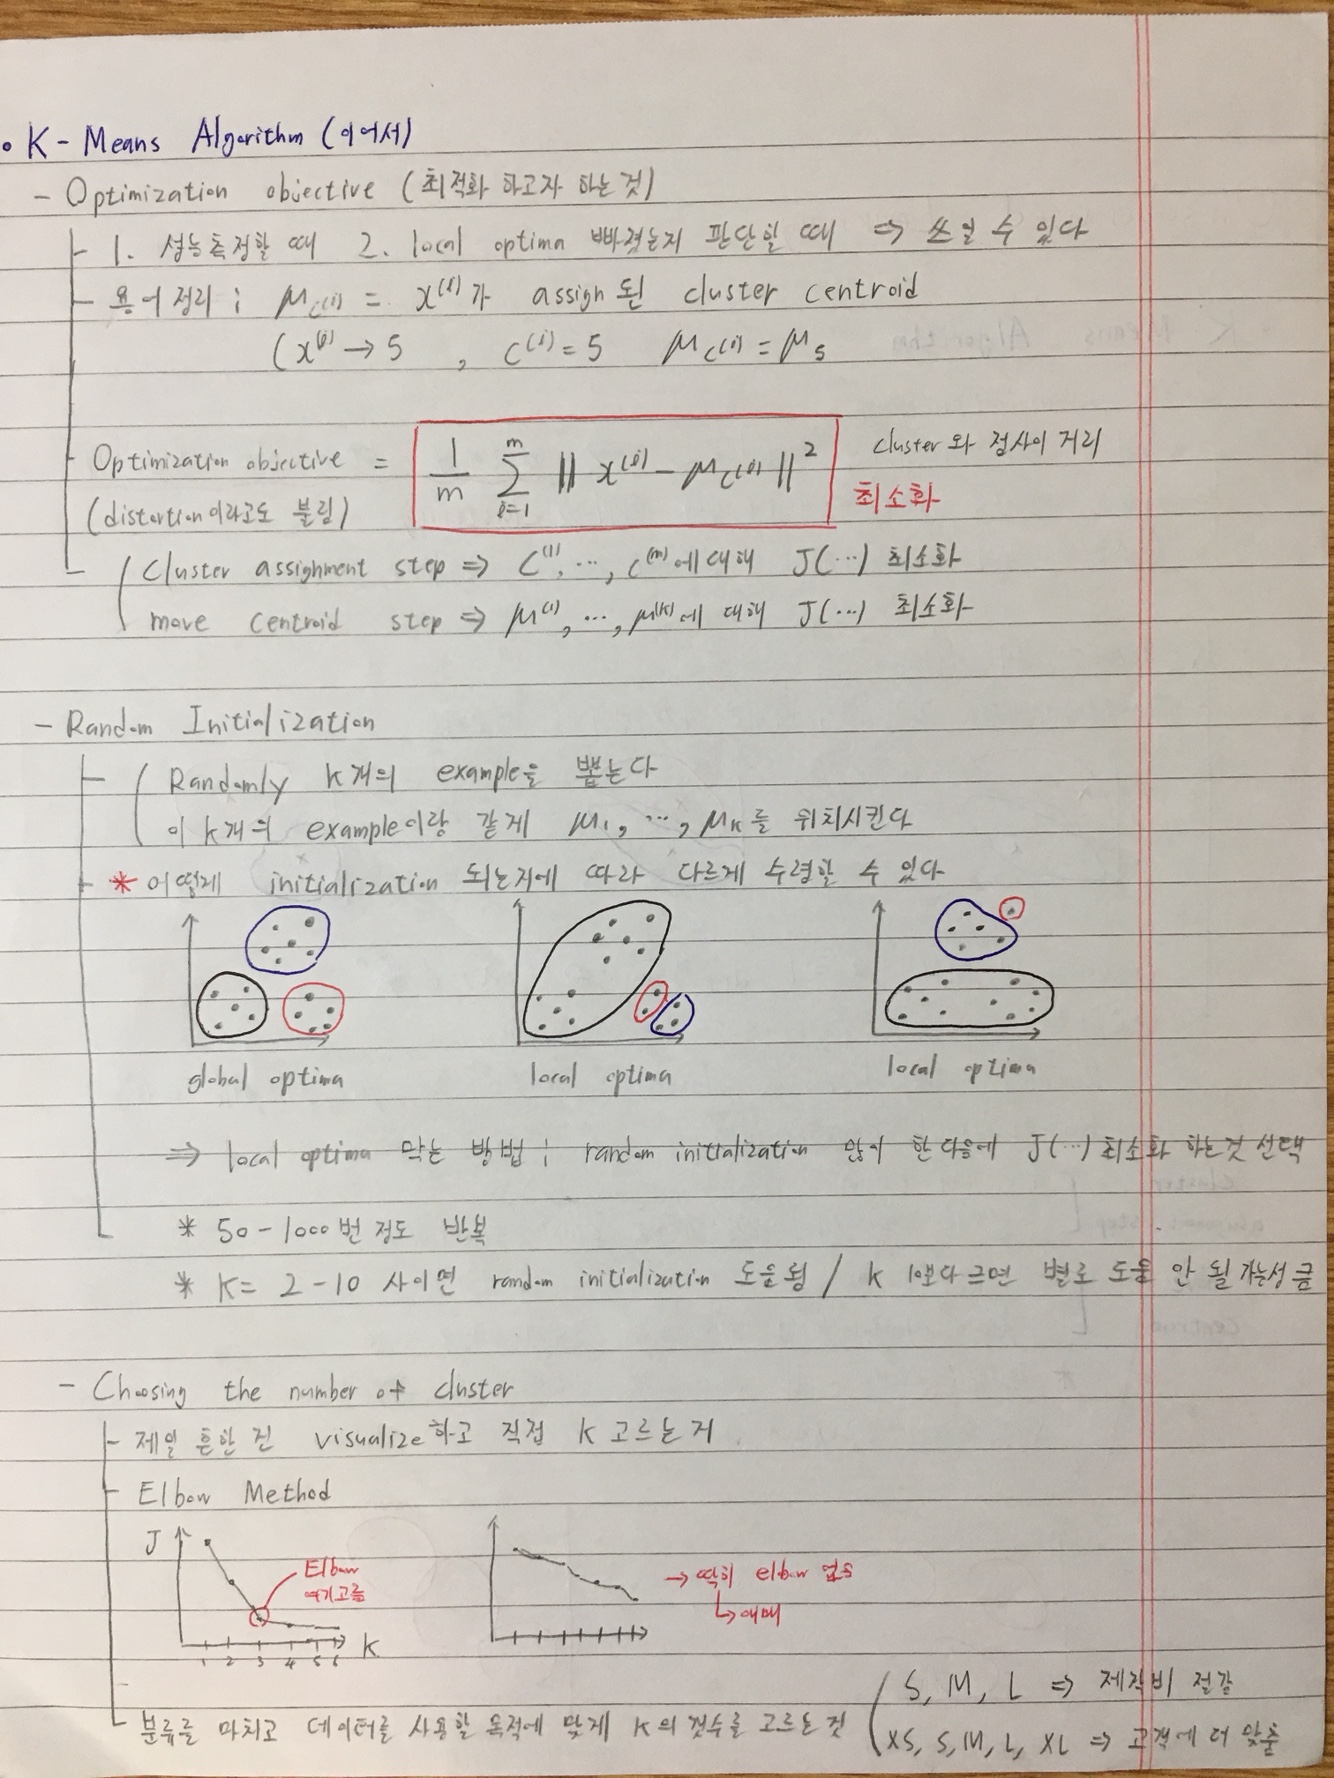 • K-Means Algorithm (이어서)
- Optimization objective (최적화 하고자 하는 것)
- 1. 성능측정할 때 2. local optima 빠졌는지 판단할 때 ⇒ 쓰일 수 있다
- 용어정리 ; μ_c(i) = x^(i)가 assign된 cluster centroid
(x^(i) → 5 , c^(i) = 5 μ_c(i) = μ_5
Optimization objective = 1/m Σ_{i=1}^{m} || x^(i) - μ_c(i) ||^2 cluster와 점사이 거리
(distortion이라고도 불림) 최소화
Cluster assignment step ⇒ c^(1), ..., c^(m)에 대해 J(...) 최소화
move centroid step ⇒ μ^(1), ..., μ^(k)에 대해 J(...) 최소화
- Random Initialization
Randomly K개의 example을 뽑는다
이 K개의 example이랑 같게 μ_1, ..., μ_K를 위치시킨다
* 어떻게 initialization 되는지에 따라 다르게 수렴할 수 있다
global optima local optima local optima
⇒ local optima 막는 방법 ; random initialization 많이 한다음에 J(...) 최소화 하는것 선택
* 50-1000번 정도 반복
* K = 2-10 사이면 random initialization 도움됨 / K 크면 별로 도움 안 될 가능성 큼
- Choosing the number of cluster
- 제일 흔한 건 visualize하고 직접 K 고르는거
- Elbow Method
J
Elbow
여기고름
→ 딱히 elbow 없음
↳ 애매
1 2 3 4 5 6 K
분류를 마치고 데이터를 사용할 목적에 맞게 K의 갯수를 고르는 것
S, M, L ⇒ 제작비 절감
XS, S, M, L, XL ⇒ 고객에 더 맞춤